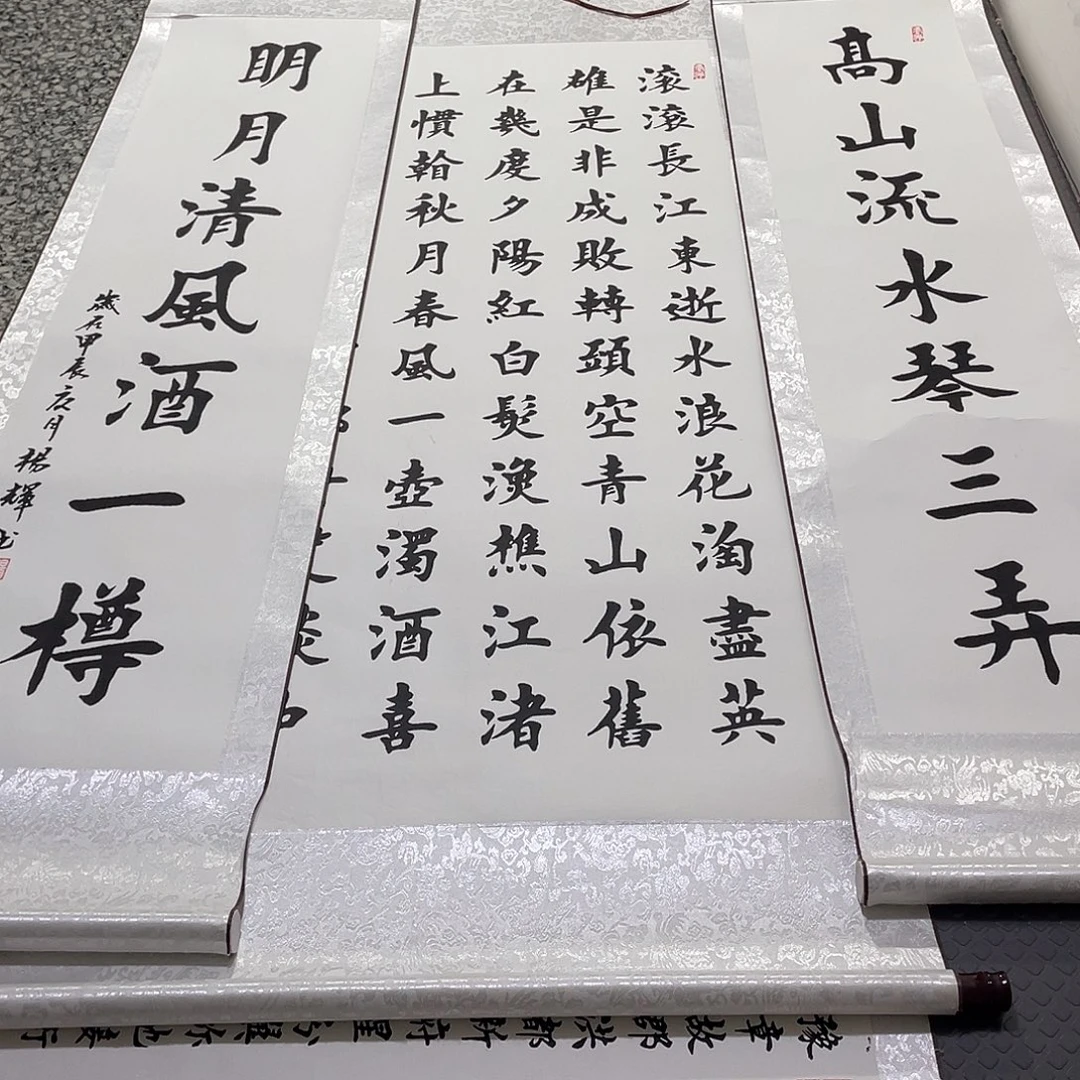 髙山流水琴三弄
滾滾長江東逝水浪花淘盡英
雄是非成敗轉頭空青山依舊
在幾度夕陽紅白髮漁樵江渚
上慣看秋月春風一壺濁酒喜
明月清風酒一樽
歲在甲辰夏月楊輝書
豫章故郡洪都新府星分翼